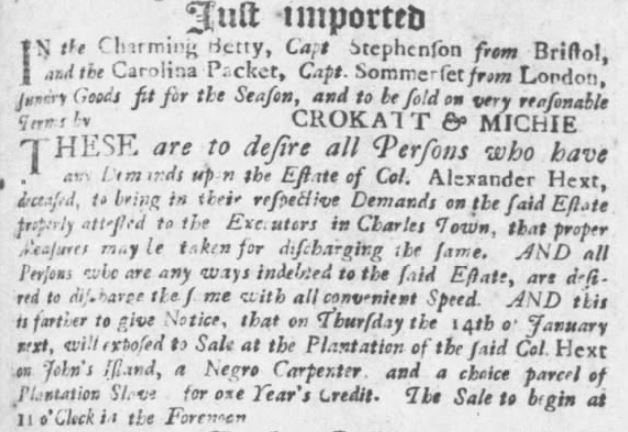 Just imported
IN the Charming Betty, Capt Stephenson from Bristol,
and the Carolina Packet, Capt. Sommerset from London,
sundry Goods fit for the Season, and to be sold on very reasonable
Terms by CROKATT & MICHIE
THESE are to desire all Persons who have
any Demands upon the Estate of Col. Alexander Hext,
deceased, to bring in their respective Demands on the said Estate
properly attested to the Executors in Charles Town, that proper
Measures may be taken for discharging the same. AND all
Persons who are any ways indebted to the said Estate, are desi-
red to discharge the same with all convenient Speed. AND this
is farther to give Notice, that on Thursday the 14th of January
next, will exposed to Sale at the Plantation of the said Col. Hext
on John's Island, a Negro Carpenter and a choice parcel of
Plantation Slave for one Year's Credit. The Sale to begin at
11 o'Clock in the Forenoon